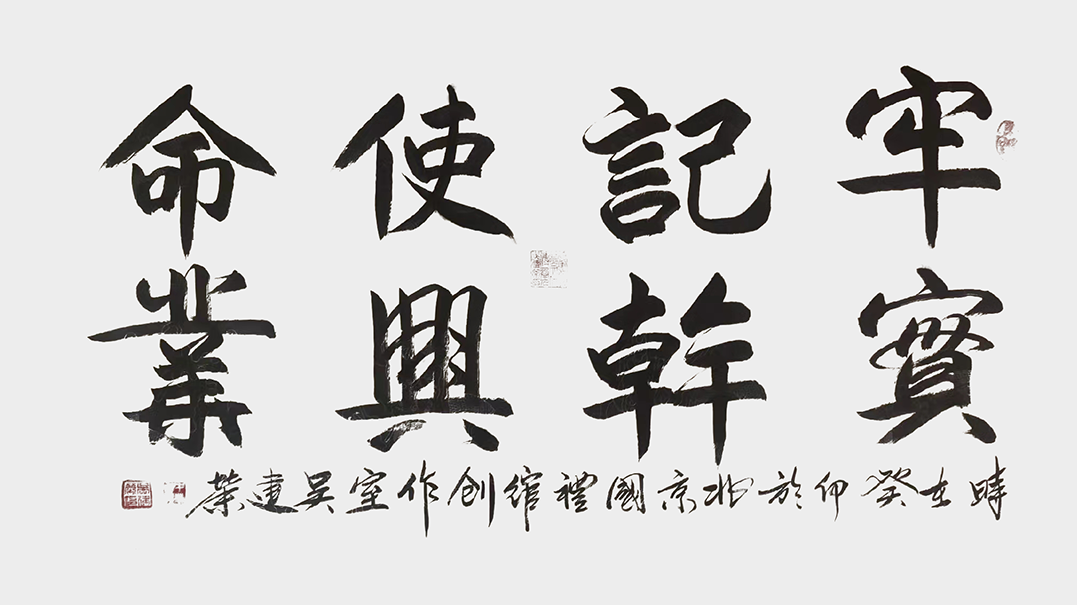 牢記使命
實幹興業
時在癸卯於北京國禮館创作室吴建荣